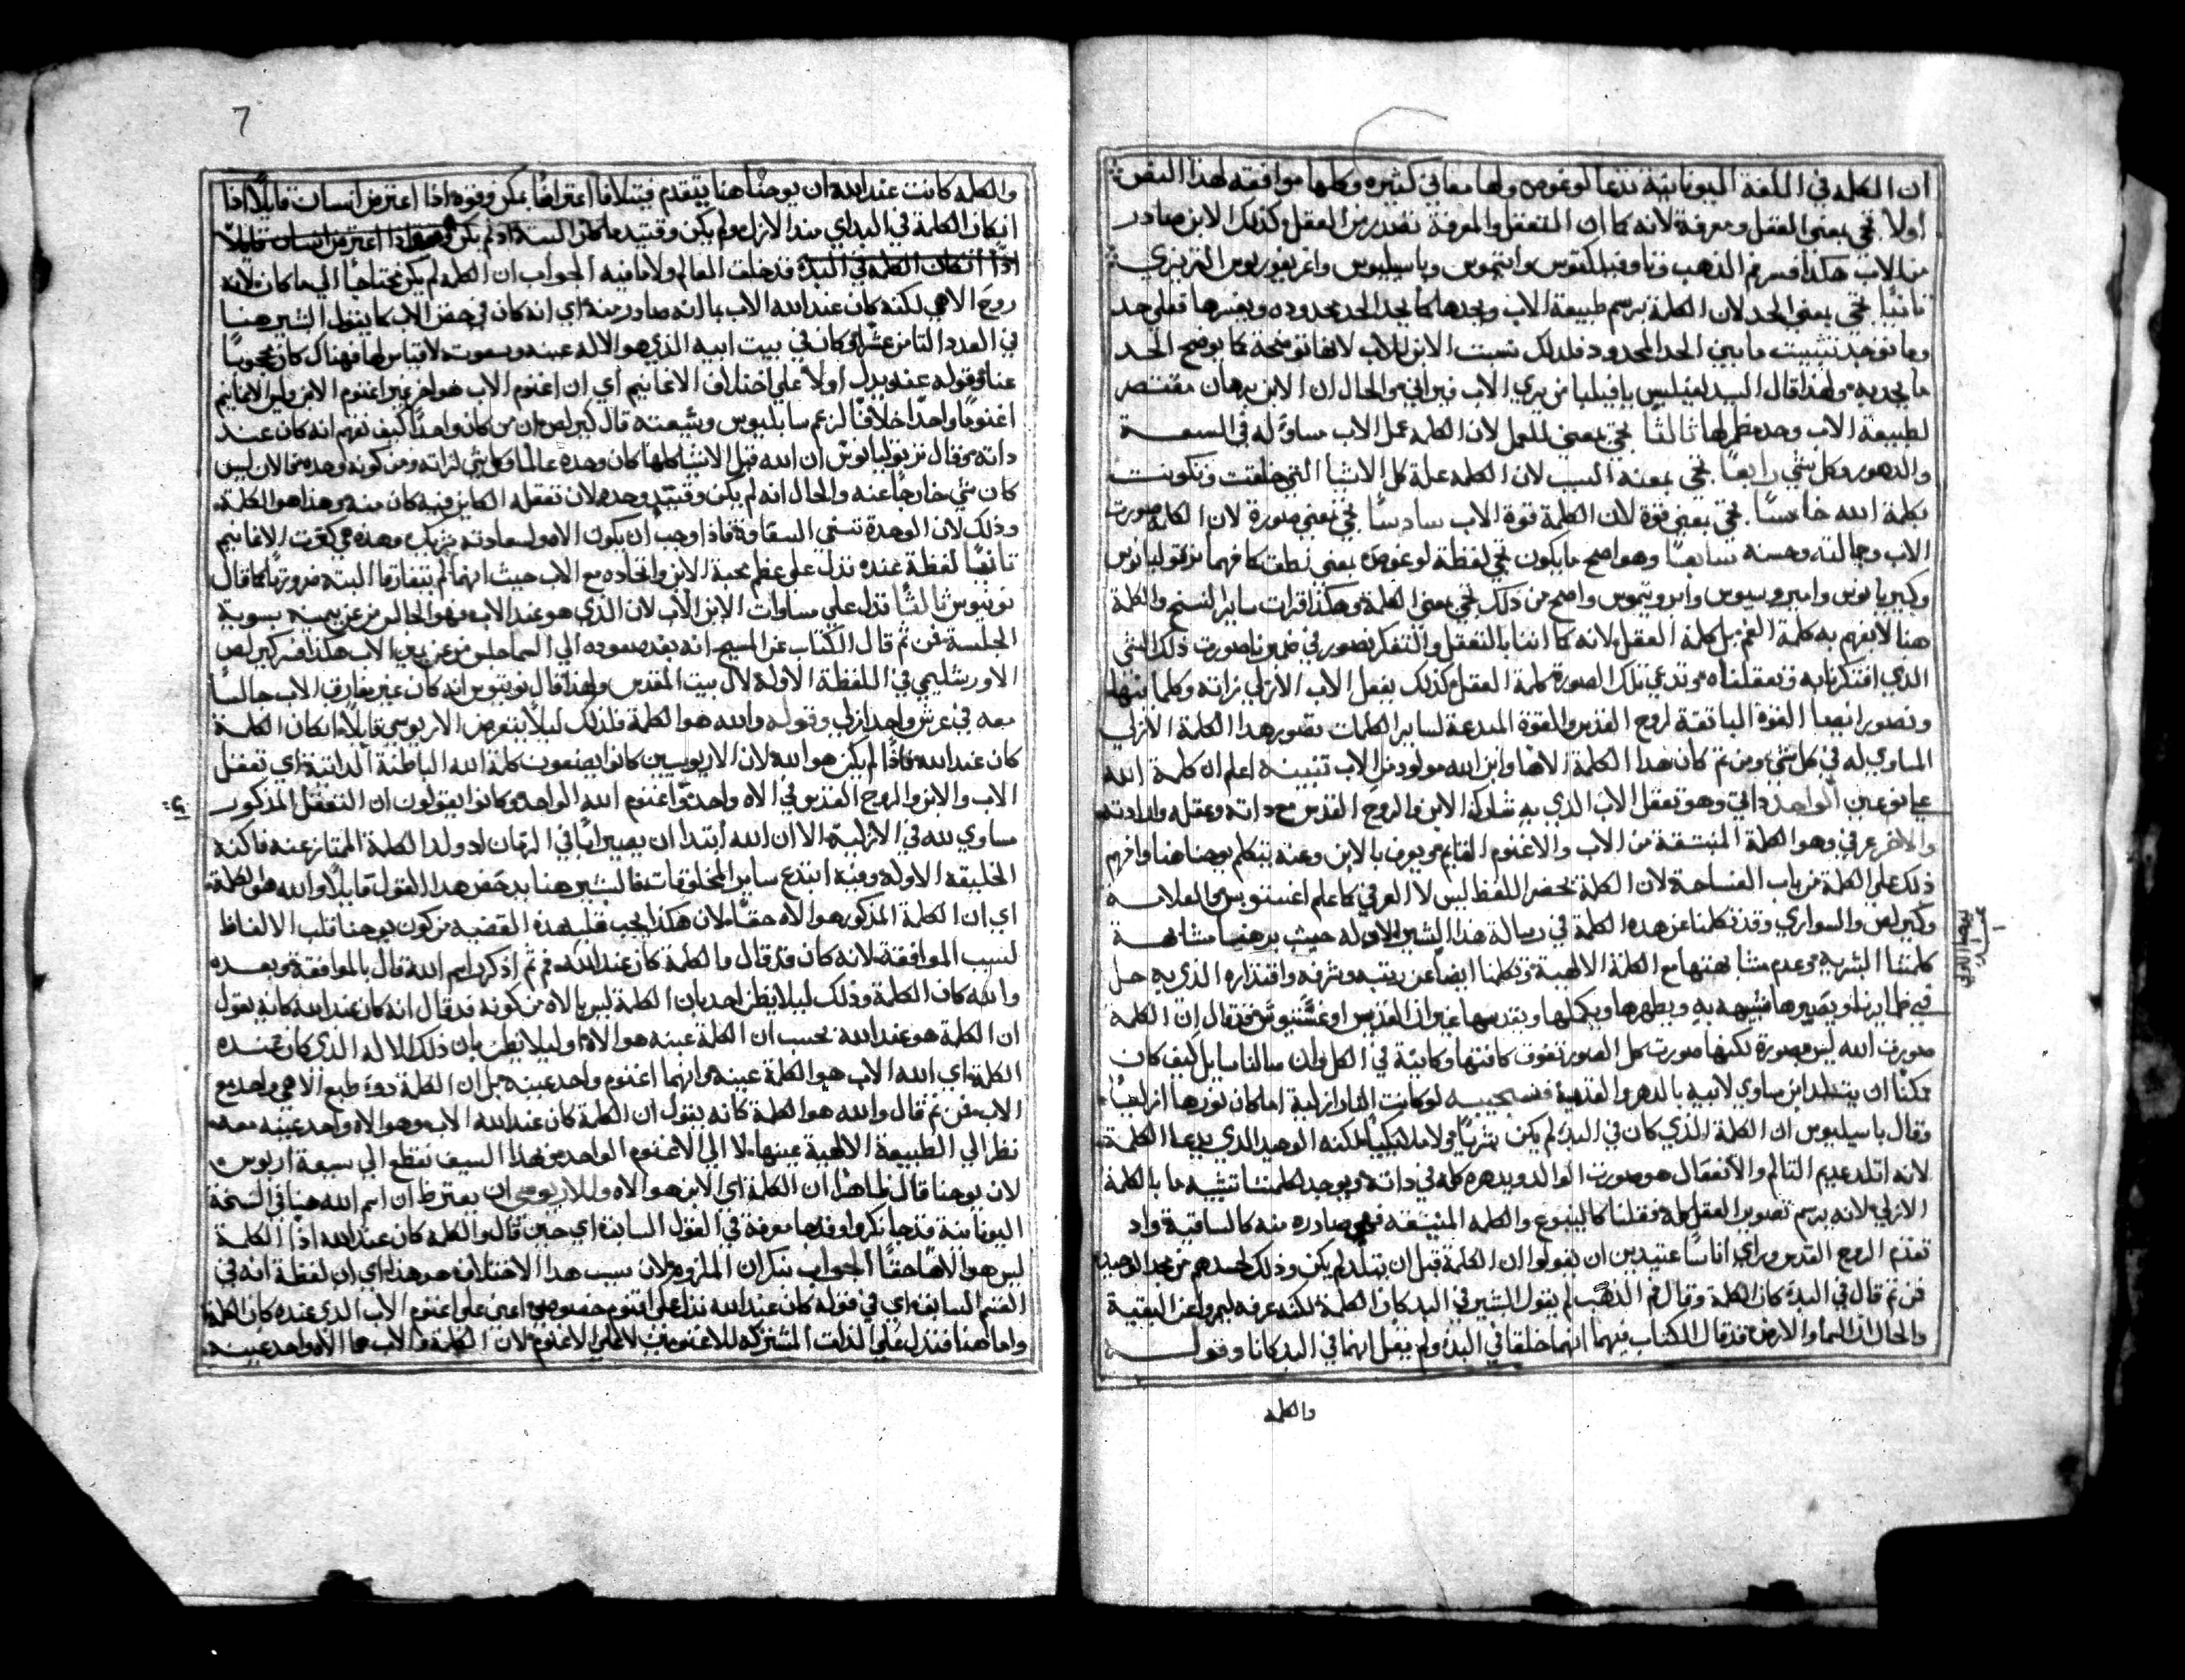 ان الكلمه في اللغة اليونانية تدعا لوغوس ولها معاني كثيره وكلها موافقه لهذا النص
اولاً تجي بمعني العقل ومعرفة لانه كما ان التعقل والمعرفة تصدر من العقل وكذلك الابن صادر
من الاب هكذا فسر فم الذهب وتاوفيلكتوس وافتيموس وباسيليوس واغريغوريوس النزينزي
ثانياً تجي بمعني الحد لان الكلمة ترسم طبيعة الاب وتحدها كما يحد الحد محدوده ويفسرها فعلي حد
وما توجد تثبيت ما بين الحد والمحدود فلدلك نسبت الابن للاب لانها توضحة كما يوضح الحد
ما يحد به ولهذا قال السيد لفيلبس يا فيلبا من يري الاب فيراني والحال ان الابن برهان مقتصر
لطبيعة الاب وحده مظهرها ثالثاً تجي بمعني للعمل لان الكلمه عمل الاب مساوٍ له في السعة
والدهور وكل شي رابعاً تجي بمعنه السبب لان الكلمه علة كل الاشيا التي خلقت وتكونت
بكلمة الله خامساً تجي بمعني قوة لان الكلمة قوة الاب سادساً تجي بمعني صورة لان الكلمه صورت
الاب وجمالته وحسنه سابعاً وهو اصح ما يكون تجي لفظة لوغوس بمعني نطق كما فهما ترتوليانوس
وكبريانوس وامبروسيوس وايرونيموس واصح من ذلك تجي بمعني الكلمة وهكذا قرات ساير النسخ والكلمة
هنا لا يفهم به كلمة الفم بل كلمة العقل لانه كما اننا بالتعقل والتفكر نصور في ضميرنا صورت ذلك الشي
الذي افتكرنا به وتعقلناه وتدعي تلك الصورة كلمة العقل كذلك بفعل الاب الازلي بذاته وكلما
وتصور ايضا القوة الباثقة لروح القدس والقوة المبدعة لساير الكلمات بتصور هذا الكلمة الازلي
المساوي له في كل شي ومن ثم كان هذا الكلمة الاها وابن الله مولود من الاب تنبيه اعلم ان كلمة الله
علي نوعين الواحد ذاتي وهو تعقل الاب الذي به شارك الابن والروح القدس مع ذاته وعقله وارادته
والاخر عرفي وهو الكلمة المنبثقة من الاب والاغنوم القايم ويعرف بالابن وعنه يتكلم يوحنا هنا وافهم
ذلك علي الكلمة من باب الفساحة لان الكلمة يخص اللفظ ليس لا العرفي كما علم اغستنوس العلامة
وكيرلس والسواري وقد تكلمنا عن هذه الكلمة في رسالة هذا البشير الاوله حيث برهنا مشابهة
كلمتنا البشريه وعدم مشابهتها مع الكلمة الالهية وتكلمنا ايضاً عن رتبته وشرفه واقتداره الذي به حل
في ضمايرنا ويصيرها شبيهه به ويطهرها ويكملها ويقدسها غير ان القديس اوغسنتيوس قال ان الكلمة
صورت الله ليس مصورة لكنها صورت كل الصور تفوق كافتها وكاينة في الكل وان سالنا سايل كيف كان
ممكناً ان يتولد ابن مساوي لابيه بالدهر والقدمية فنجيبه لو كانت النار ازلية اما كان نورها ازلياً
وقال باسيليوس ان الكلمة الذي كان في البدء لم يكن بشرياً ولا ملايكياً لكنه الوحيد الذي يدعا الكلمة
لانه اتلد عديم التالم والانفعال هو صورت الوالد ويظهره كله في ذاته ويوجد لكلمتنا تشبيه ما بالكلمة
الازلي لانه يرسم تصوير العقل كله فعقلنا كالينبوع والكلمه المنبثقه فهي صادره منه كالساقية واد
تقدم الروح القدس وراي اناساً عتيدين ان يقولوا ان الكلمة قبل ان يتلد لم يكن وذلك لحسدهم من مجد الوحيد
فمن ثم قال في البدء كان الكلمة وقال فم الذهب لم يقول البشير في البدء كان الكلمة لكنه عرفه ليميزه عن البقية
والحال ان السما والارض قد قال الكتاب فيهما انهما خلقا في البدء ولم يقل انهما في البدء كانا وقوله
والكلمه
7
والكلمه كانت عند الله ان يوحنا هنا يتقدم فيتلافا اعتراضاً يمكن وقوه اذا اعترض انسان قايلاً اذا
ان كان الكلمة في البدء اي منذ الازل ولم يكن وقتيد ما كان البتة
اذاً ان كان الكلمه في البدء قد خلق العالم ولا ما فيه الجواب ان الكلمه لم يكن محتاجاً الي ما كان لانه
روح الاهي لكنه كان عند الله الاب بما انه صادر منه اي انه كان في حضن الاب كما يقول البشير هنا
في العدد الثامن عشر اي كان في بيت ابيه الذي هو الاله عينه وبصوت لا قياس لها فهناك كان محجوباً
عنا وقوله عند يدل اولاً علي اختلاف الاغانيم اي ان اغنوم الاب هو اخر غير اغنوم الابن وليس الاغانيم
اغنوماً واحداً خلافاً لزعم سابليوس وشيعته قال كيرلس من كان واحداً كيف نفهم انه كان عند
داته وقال ترتوليانوس ان الله قبل الاشيا كلها كان وحده عالماً وكل شي لذاته ومن كونه وحده فلان ليس
كان شي خارجاً عنه والحال انه لم يكن وقتيد وحده لان تعقله الكاين فيه كان منه وهذا هو الكلمة
وذلك لان الوحدة تسمي الشقاوة فاذا وجب ان يكون الاهو لسعادته شريك وهذه هي كثرت الاغانيم
ثانياً لفظة عنده تدل علي عظم محبة الابن واتحاده مع الاب حيث انهما لم يتفارقا البتة ضرورتاً كما قال
نونيوس ثالثاً تدل علي مساوات الابن الاب لان الذي هو عند الاب فهو الجالس من عن يمينه بسوية
الجلسة فمن ثم قال الكتاب عن المسيح انه بعد صعوده الي السما جلس من عن يمين الاب هكذا فسر كيرلس
الاورشليمي في اللفظة الاولة لال بيت المقدس ولهذا قال نونيوس انه كان غير مفارق الاب جالساً
معه في عرش واحد ازلي وقوله والله هو الكلمة فلذلك ليلا يعترض الاريوسي قايلاً ان كان الكلمة
كان عند الله فاذاً لم يكن هو الله لان الاريوسيين كانوا يضعون كلمة الله الباطنة الذاتية اي تعقل
الاب والابن والروح القدس في الاه واحد واغنوم الله الواحد وكانوا يقولون ان التعقل المذكور
مساوي لله في الازلية الا ان الله ابتدا ان يصير اباً في الزمان اد ولد الكلمة الممتاز عنه فاكنه
الخليقه الاوله وفيه ابتدع ساير المخلوقات فالبشير هنا يدحض هذا القول قايلاً والله هو الكلمة
اي ان الكلمة المذكور هو الاه حقاً لان هكذا يجب قلب هذه القضيه من كون يوحنا قلب الالفاظ
لسبب الموافقة لانه كان قد قال والكلمة كان عند الله فمن ثم اذ كرر اسم الله قال بالموافقة وبعده
والله كان الكلمة وذلك ليلا يظن احد بان الكلمة ليس بالاه من كونه قد قال انه كان عند الله كانه يقول
ان الكلمة هو عند الله بحسب ان الكلمة عينه هو الاه او ليلا يظن بان ذلك الاله الذي كان عنده
الكلمة اي الله الاب هو الكلمة عينه وانهما اغنوم واحد عينه بل ان الكلمة ذو طبع الاهي واحد مع
الاب فمن ثم قال والله هو الكلمة كانه يقول ان الكلمة كان عند الله الاب وهو الاه واحد عينه معه
نظراً الي الطبيعة الالهية عينها لا الي الاغنوم الواحد من هذا السيف نقطع الي شيعة اريوس
لان يوحنا قال ظاهراً ان الكلمة اي الابن هو الاه وللاريوسي ان يعترض ان اسم الله هنا في النسخة
اليونانية قد جا نكرة وقدها معرفة في القول السابق اي حين قال والكلمه كان عند الله اذاً الكلمة
ليس هو الاهاً حقاً الجواب ننكر ان الملزوم لان سبب هذا الاختلاف هو هذا اي ان لفظة الله في
القسم السابق اي في قوله كان عند الله تدل علي اغنوم خصوصي اعني علي اغنوم الاب الذي عنده كان الكلمة
واما هنا فتدل علي الذات المشتركه للاغنومين لا علي الاغنوم لان الكلمة والاب هما الاه واحد عينه